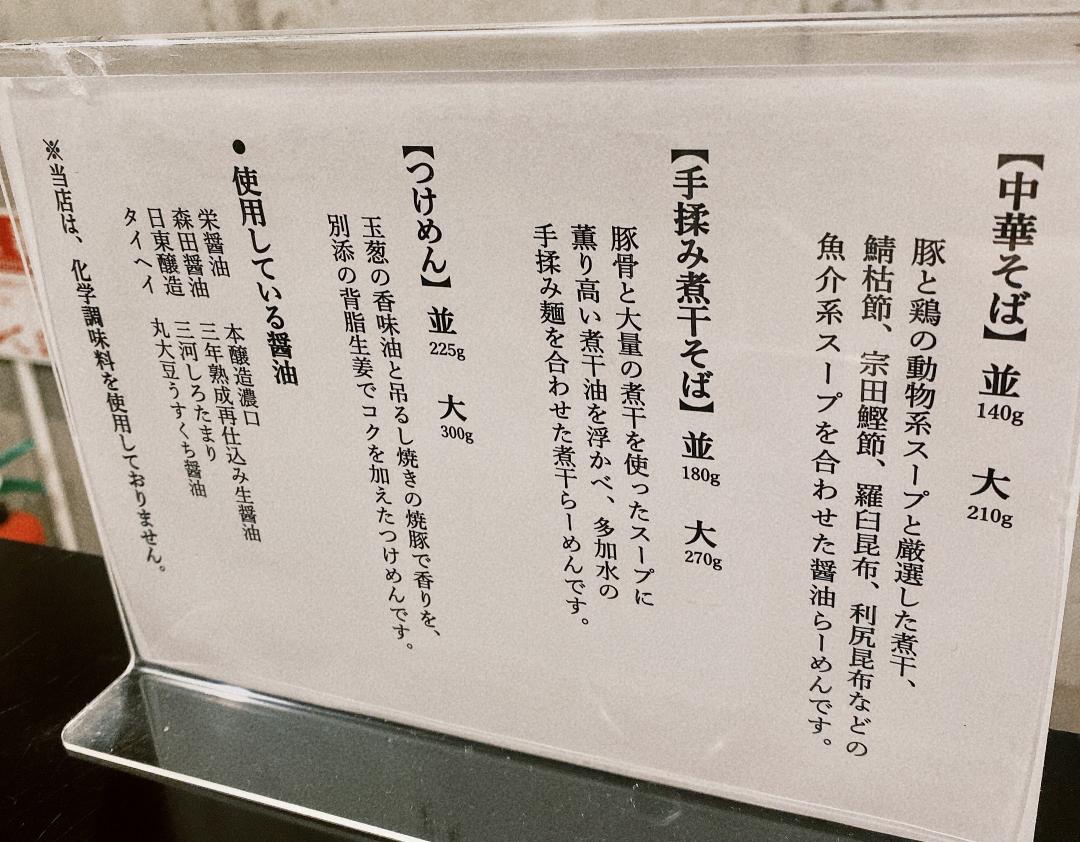 【中華そば】 並 140g 大 210g
豚と鶏の動物系スープと厳選した煮干、
鯖枯節、宗田鰹節、羅臼昆布、利尻昆布などの
魚介系スープを合わせた醤油らーめんです。
【手揉み煮干そば】 並 180g 大 270g
豚骨と大量の煮干を使ったスープに
薫り高い煮干油を浮かべ、多加水の
手揉み麺を合わせた煮干らーめんです。
【つけめん】 並 225g 大 300g
玉葱の香味油と吊るし焼きの焼豚で香りを、
別添の背脂生姜でコクを加えたつけめんです。
●使用している醤油
栄醤油 本醸造濃口
森田醤油 三年熟成再仕込み生醤油
日東醸造 三河しろたまり
タイヘイ 丸大豆うすくち醤油
※当店は、化学調味料を使用しておりません。